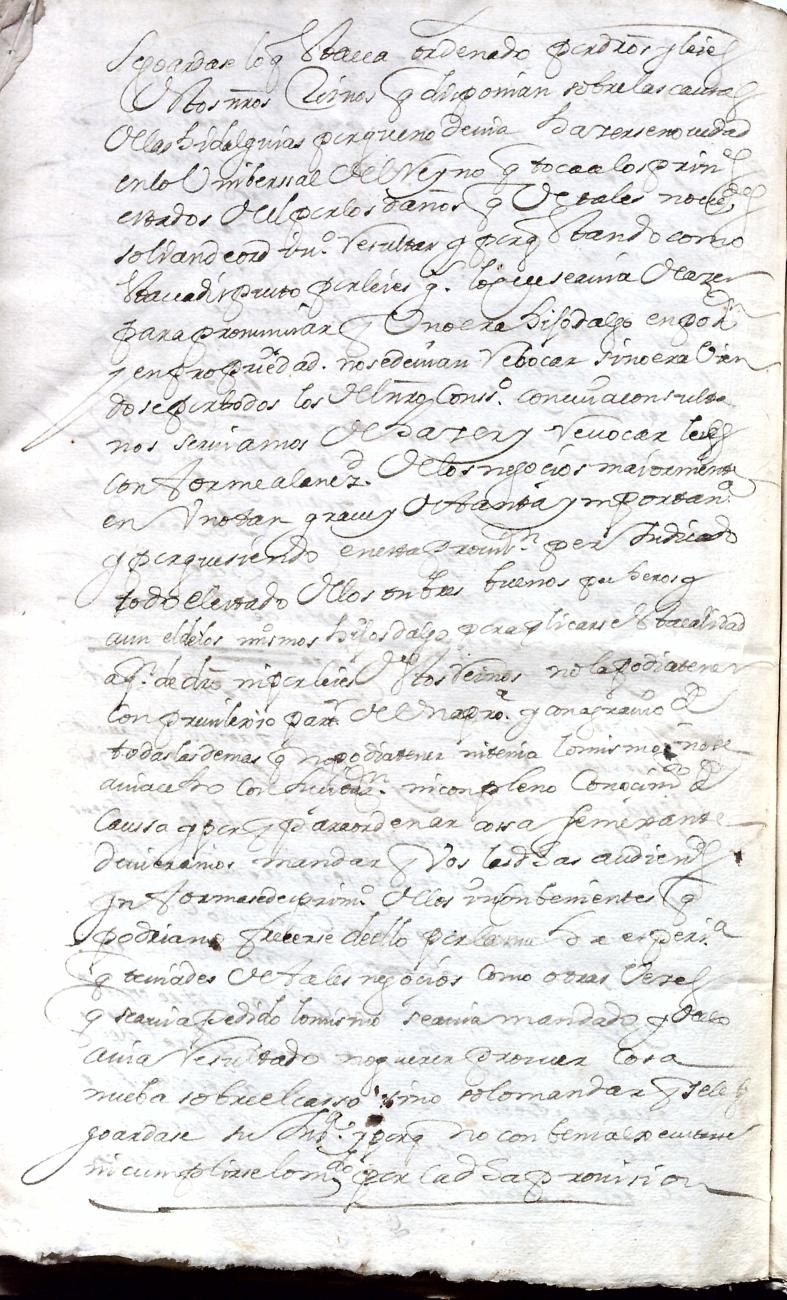 se goardase lo q estava ordenado por dros y leies
destos nros Reinos q disponian sobre las causas
de las hidalguias porque no devia hazerse novedad
en lo Unibersal del Reyno q toca a los prin
estados del por los daños q de tales
solian de Resultar y porq estando como
estava dispuesto por leies lo que se avia de azer
para pronunciar q Uno era hijodalgo en pos
y en propiedad. no se devian Rebocar sino era vien
dose por todos los del nro Conso. con cuia consulta
nos serviamos de hazer y Revocar leies
conforme a la nezd. de los negocios maiormente
en Uno tan grave y de tanta ymportana
y porque siendo en esta provina per Judicado
todo el estado de los onbres buenos pecheros y
aun el de los mismos hijosdalgo por aplicarse esta calidad
a q. de dro ni por leies destos Reinos no la podia tener
con previlexio part. de Una pro. y con agravio de
todas las demas q no podia tener ni tenia lo mismo no se
avia echo con ni con pleno Conocimo de
Caussa y porq para ordenar cossa semexante
devieramos mandar q Vos las dhas audiens
ynformasedes primo. de los ynconbenientes q
podrian ofrecerse dello por la mucha esperia
q teniades de tales negocios como otras Vezes
q se avia pedido lo mismo se avia mandado y dello
avia Resultado no querer proveer cosa
nueba sobre el casso sino solo mandar q se le
goardase su Justa. y porq no conbenia executarse
ni cumplirse lo mdo por la dha provision